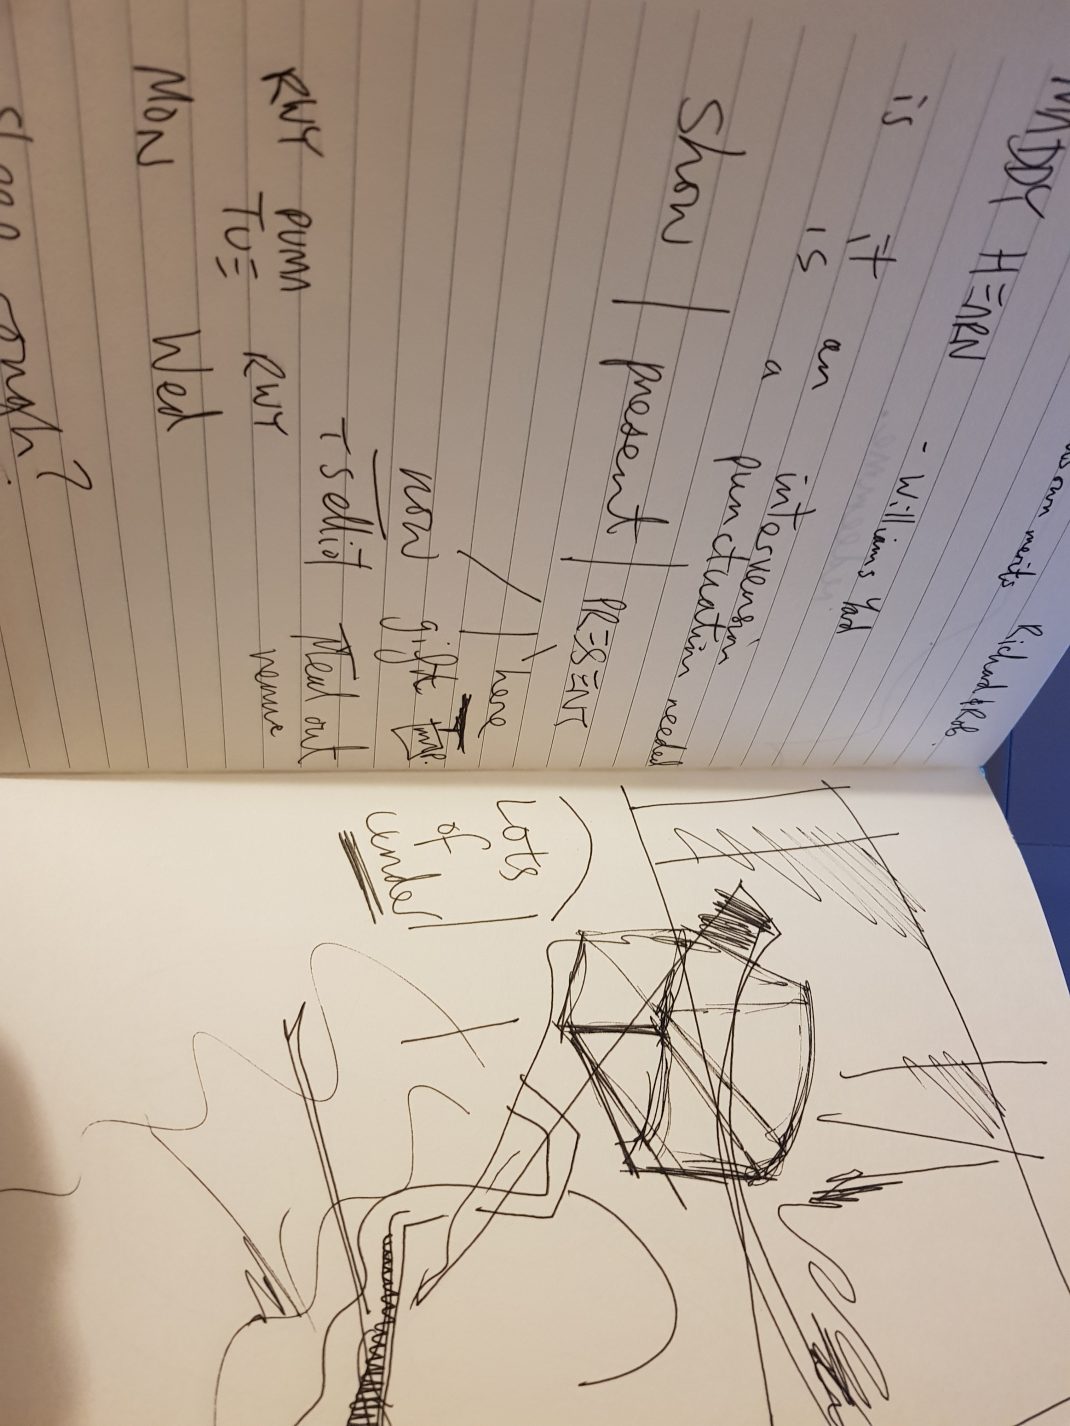 Richard & Rob
MADDY HEARN - Williams Yard
is it an intervension
is a punctuation needed
Show | present | PRESENT
here
now gift
TS elliot Read out
RWY
TUE RWY
MON Wed
cough?
Lots
of
under